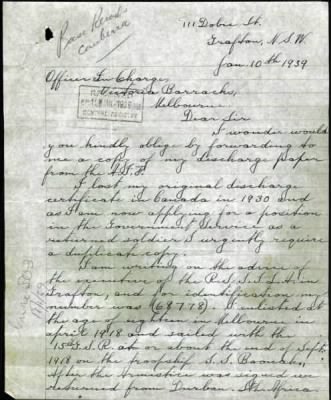 Base Records
Canberra
111 Dobie St.
Grafton, N.S.W.
Jan. 10th 1939
Officer In Charge,
Victoria Barracks,
Melbourne.
Dear Sir
I wonder would
you kindly oblige by forwarding to
me a copy of my discharge paper
from the A.I.F.
I lost my original discharge
certificate in Canada in 1930 and
as I am now applying for a position
in the Government Service as a
returned soldier I urgently require
a duplicate copy.
I am writing on the advice of
the executive of the R.S.S.I.L.A. in
Grafton, and for identification my
number was (68778). I enlisted at
the age of eighteen in Melbourne in
april 1918 and sailed with the
15th G.S.R. at or about the end of Sept.
1918 on the troopship S.S. Boonah.
After the Armistice was signed we
returned from Durban. Sth Africa